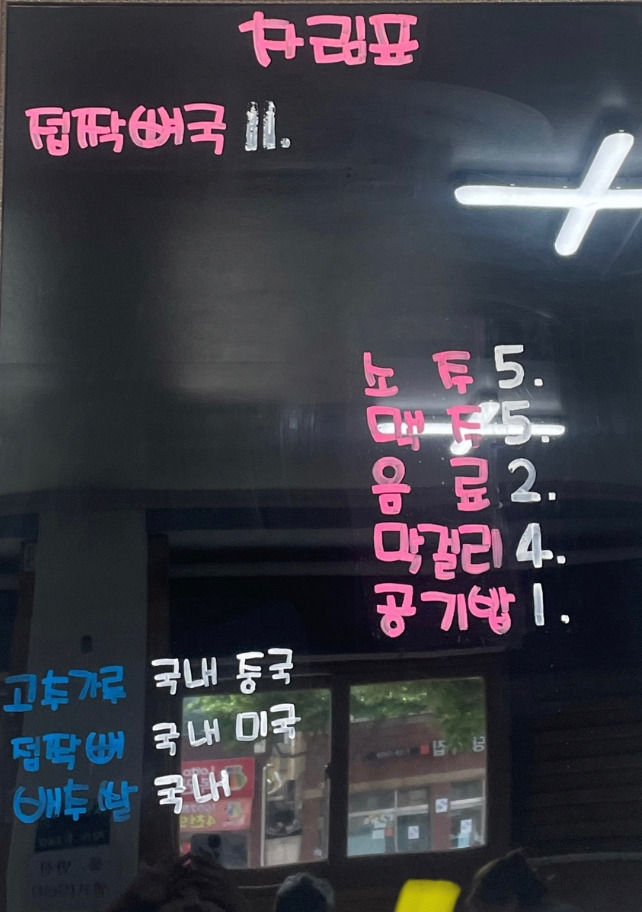 차림표
접짝뼈국 11.
소주 5.
맥주 5.
음료 2.
막걸리 4.
공기밥 1.
고추가루 국내 중국
접짝뼈 국내 미국
배추쌀 국내